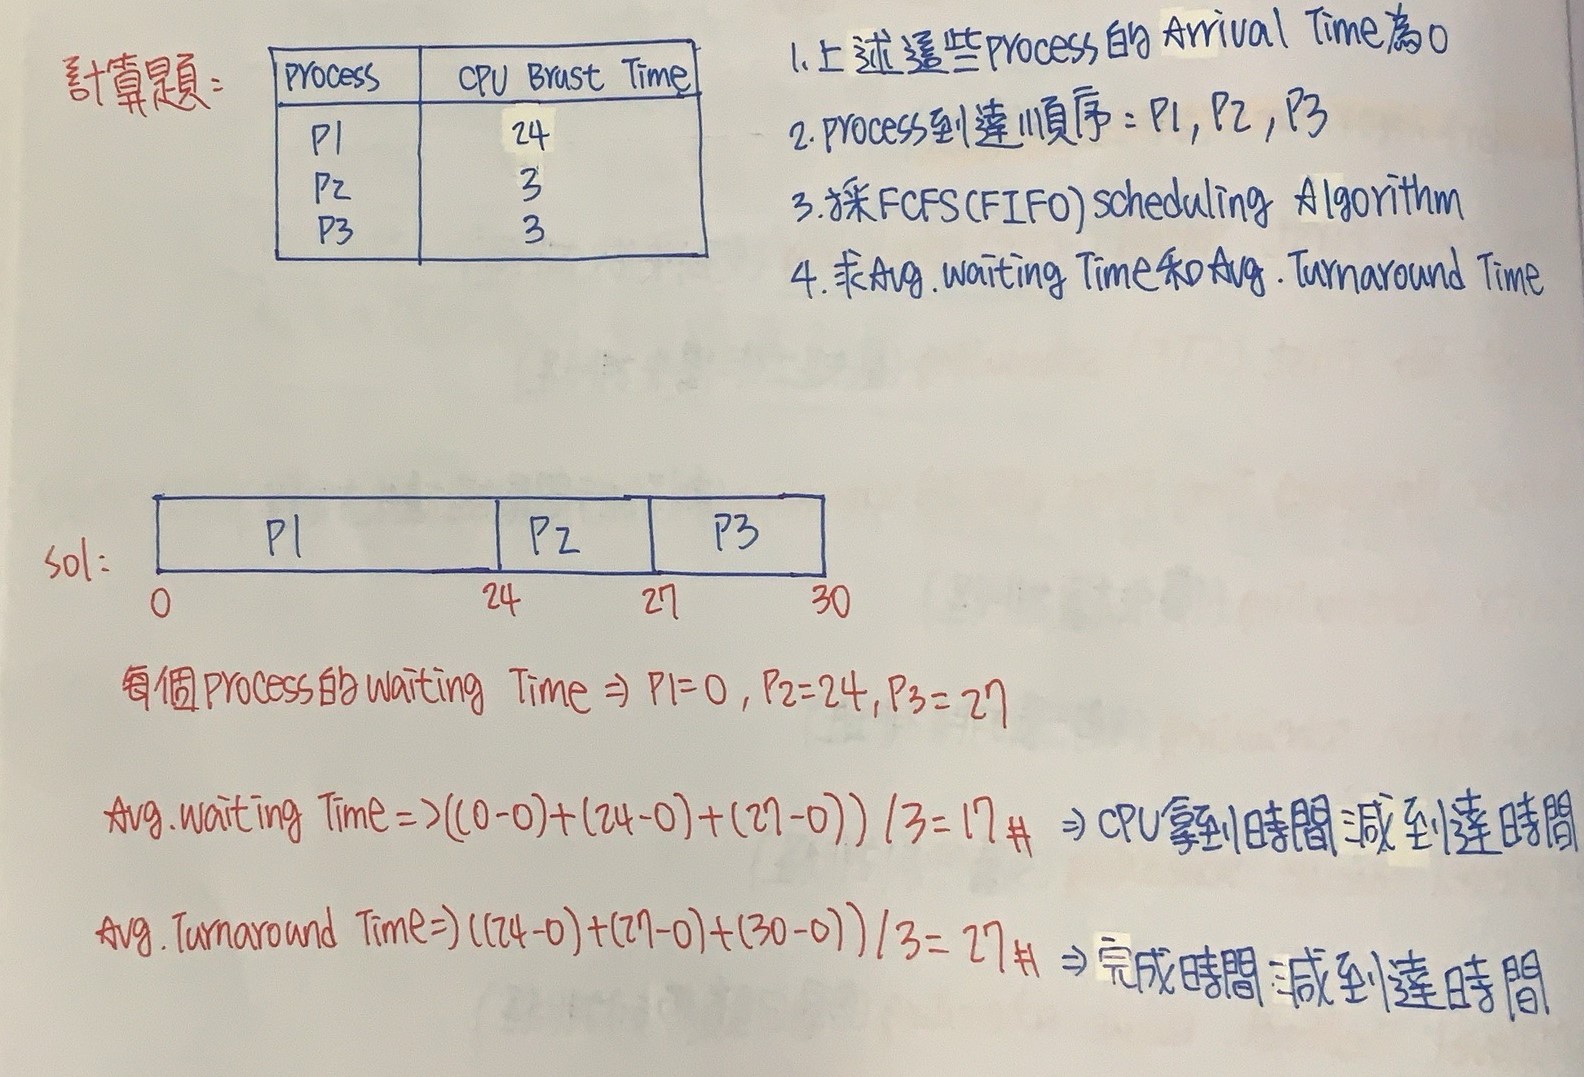 計算題:
Process CPU Brust Time
P1 24
P2 3
P3 3
1.上述這些process的 Arrival Time為0
2.process到達順序:P1,P2,P3
3.採FCFS(FIFO)scheduling Algorithm
4.求Avg.waiting Time和Avg.Turnaround Time
sol:
P1 P2 P3
0 24 27 30
每個process的waiting Time⇒P1=0,P2=24,P3=27
Avg.waiting Time=>((0-0)+(24-0)+(27-0))/3=17# ⇒CPU拿到時間減到達時間
Avg.Turnaround Time=>((24-0)+(27-0)+(30-0))/3=27# ⇒完成時間減到達時間